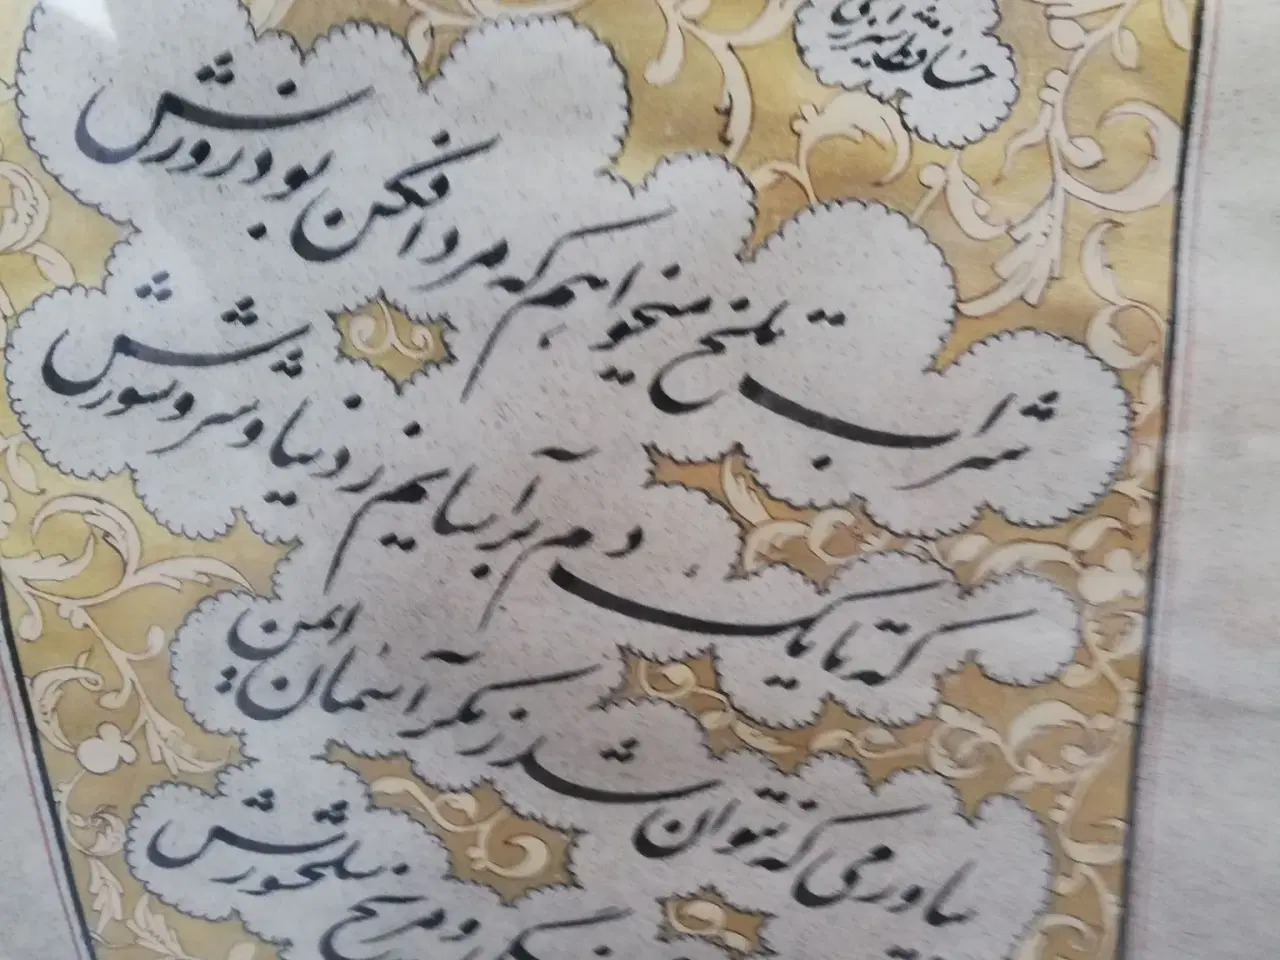 حافظ شیرازی
شراب تلخ میخواهم که مرد افکن بود زورش
که تا یکدم برآسایم ز دنیا و شر و شورش
بیاور می که نتوان شد ز مکر آسمان ایمن
مریخ سلحشورش